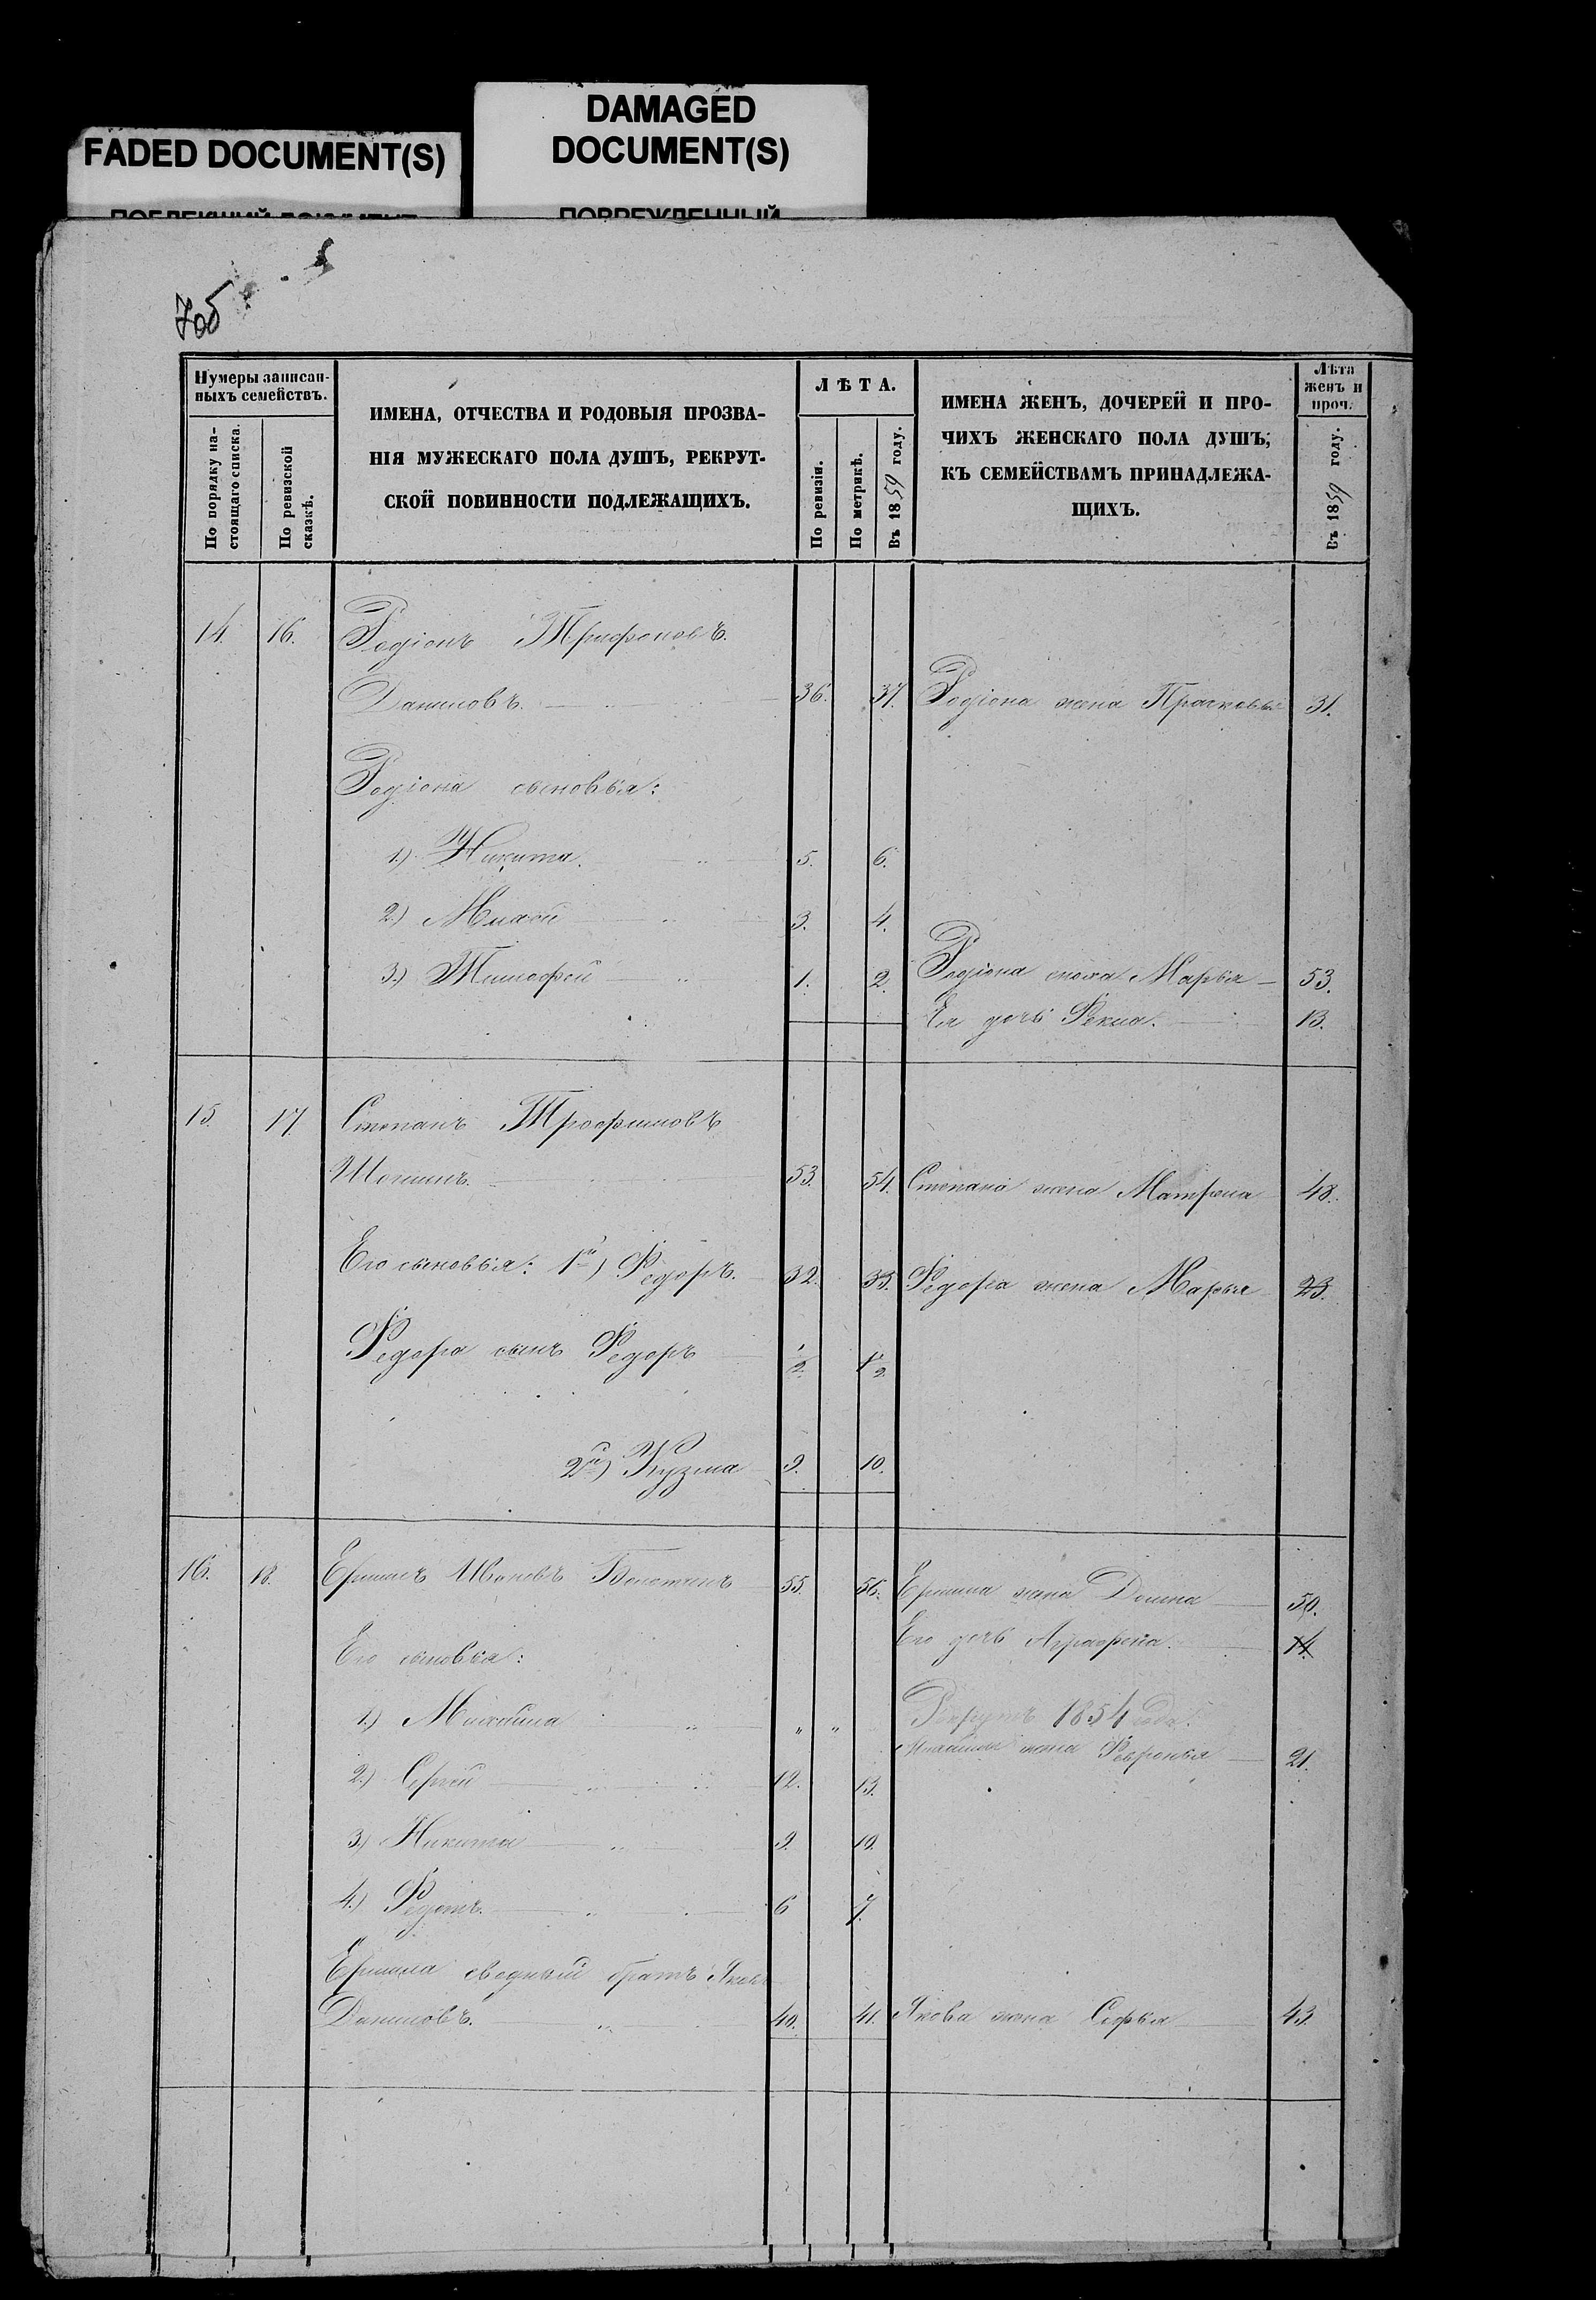 FADED DOCUMENT(S)
DAMAGED
DOCUMENT(S)
ПОВРЕЖДЕННЫЙ
7об
Нумеры записан-
ныхъ семействъ.
По порядку на-
стоящаго списка.
По ревизской
сказкѣ.
ИМЕНА, ОТЧЕСТВА И РОДОВЫЯ ПРОЗВА-
НІЯ МУЖЕСКАГО ПОЛА ДУШЪ, РЕКРУТ-
СКОЙ ПОВИННОСТИ ПОДЛЕЖАЩИХЪ.
ЛѢТА.
По ревизіи.
По метрикѣ.
Въ 1859 году.
ИМЕНА ЖЕНЪ, ДОЧЕРЕЙ И ПРО-
ЧИХЪ ЖЕНСКАГО ПОЛА ДУШЪ,
КЪ СЕМЕЙСТВАМЪ ПРИНАДЛЕЖА-
ЩИХЪ.
Лѣта
женъ и
проч.
Въ 1859 году.
14. 16. Родіонъ Трифоновъ.
Даниловъ. 36. 37. Родіона жена Прасковья 31.
Родіона сыновья:
1.) Никита. 5. 6.
2.) 3. 4.
3.) Тимофей 1. 2. Родіона сноха Марья 53.
Ея дочь Фекла. 13.
15. 17. Степанъ Трофимовъ
53. 54. Степана жена Матрена 48.
Его сыновья: 1й) Федоръ. 32. 33. Федора жена Марья 23.
Федора сынъ Федоръ 1/2 1 1/2
2й) Кузма 9. 10.
16. 18. Ермилъ Ивановъ 55. 56. Ермила жена Домна 50.
Его дочь Аграфена. 14.
Его сыновья:
1.) Михайла " " Рекрутъ 1854 года.
Михайлы жена Февронья 21.
2.) Сергей 12. 13.
3.) Никита 9. 10.
4.) Федотъ. 6 7.
Ермила сводный братъ Яковъ
Даниловъ. 40. 41. Якова жена Софья 43.